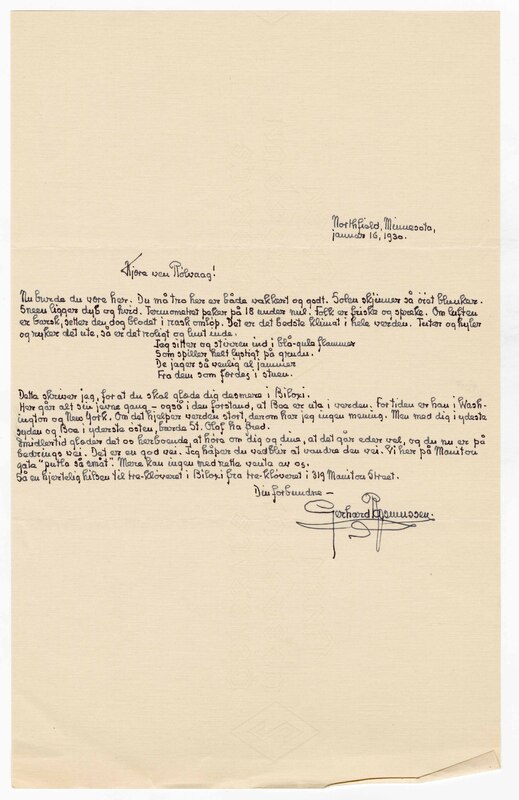 Northfield, Minnesota,
januar 16, 1930.
Kjøre ven Rölvaag!
Nu burde du vøre her. Du må tra her er både vakkert og godt. Solen skjinner så
Sneen ligger dyb og hvid. Termometret peker på 18 under nul. Folk er friske og spreke. Om luften
er barsk, setter den dog blodet i rask omløp. Det er det bedste klimat i hele verden. Tuter og hyler
og ryker det ute, så er det roligt og lunt inde.
Jeg sitter og stirrer ind i blå-gule flammer
Som spiller helt lystigt på
De jager så venlig al jammer
Fra dem som fördes i stuen.
Dette skriver jeg, for at du skal gløde dig desmere i Biloxi.
Her går alt sin jevne gang – også i den forstand, at Boe er ute i verden. For tiden er han i Wash-
ington og New York. Om det hjelper verden stort, derom har jeg ingen mening. Men med dig i ydeste
syden og Boe i yderste østen, burde St. Olaf ha fred.
Emidlertid gløder det os herboende, at höre om dig og dine, at det går eder vel, og du nu er på
bedrings vei. Det er en god vei. Jeg håper du vedblir at vandre den vei. Vi her på Manitou
gata "putla så småt". Mere kan ingen med rette vente av os.
Så en hjertelig hilsen til tre-klöveret i Biloxi fra tre-klöveret i 319 Manitou Street.
Din forbundne –
Gerhard Rasmussen.